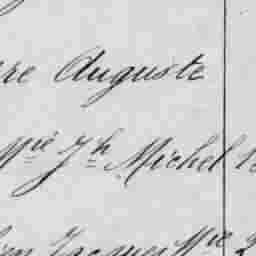 re Auguste
Mie Jh Michel
Jacques Mie